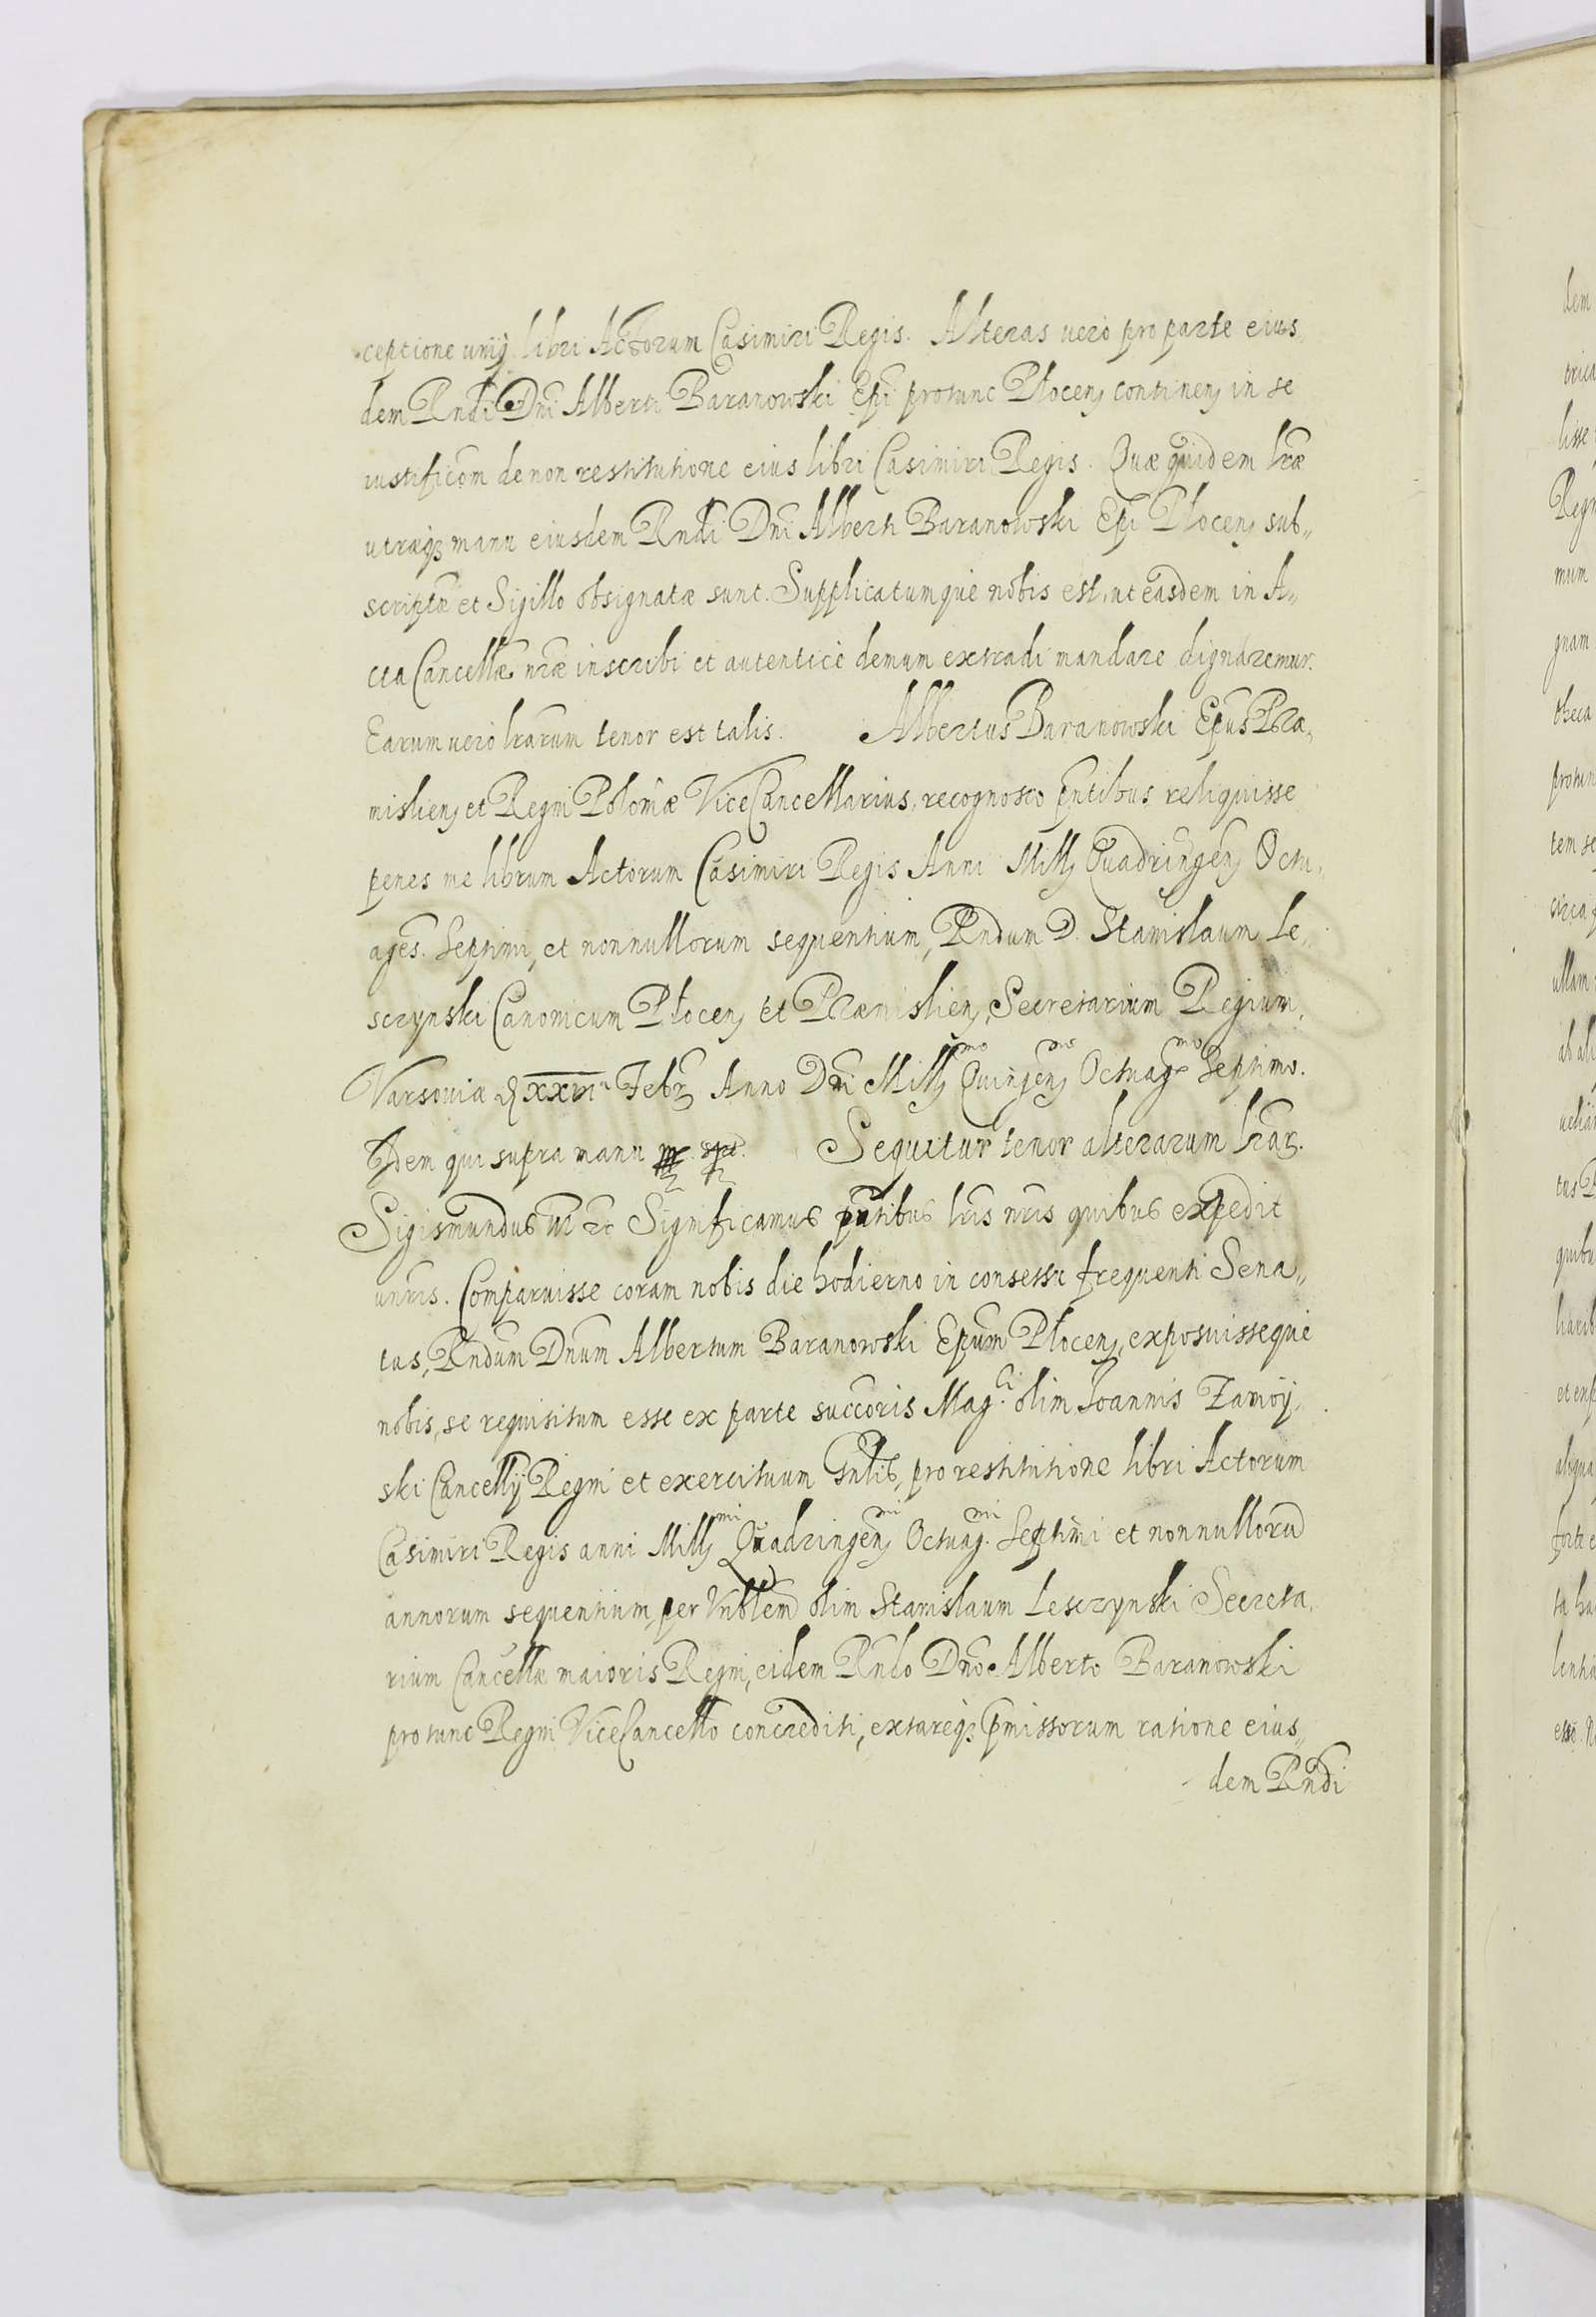 ceptione uniꝰ libri Actorum Casimiri Regis. Alteras uero pro parte eius
dem Rndi Dni Alberti Baranowski Epi protunc Płocenẜ continenẜ in se
iustificom de non restitutione eius libri Casimiri Regis. Quæ quidem lræ
utræqꝫ manu eiusdem Rndi Dni Alberti Baranowski Epi Płocenẜ sub„
scriptæ et Sigillo obsignatæ sunt. Supplicatumque nobis est, ut easdem in A„
cta Cancellæ nræ inscribi et autenticè demum extradi mandare dignaremur.
Earum uero lrarum tenor est talis. Albertus Baranowski Epus Præ„
mislienẜ et Regni Poloniæ ViceCancellarius, recognosco pntibus reliquisse
penes me librum Actorum Casimiri Regis Anni Millẜ Quadringenẜ Octu„
ages. Septimi, et nonnullorum sequentium, Rndum D. Stanislaum Le„
sczynski Canonicum Płocenẜ et Præmislienẜ, Secretarium Regium.
Varsouiæ XXVI Febr Anno Dni Millẜmo Quingenẜmo Octuagmo Septimo.
Idem qui supra manu Sequitur tenor alterarum lrar.
Sigismundus III etc Significamus pntibus lris nris quibus expedit
unris. Comparuisse coram nobis die hodierno in consessu frequenti Sena„
tus, Rndum Dnum Albertum Baranowski Epum Płocenẜ, exposuisseque
nobis, se requisitum esse ex parte succoris Mag.ci olim Joannis Zamoy„
ski Cancellij Regni et exercituum Gnlis, pro restitutione libri Actorum
Casimiri Regis anni Millẜmi Quadringenẜmi Octuag.mi Septimi et nonnulloru
annorum sequentium, per Vnblem olim Stanislaum Lesczynski Secreta„
rium Cancellæ maioris Regni, eidem Rndo Dno Alberto Baranowski
protunc Regni ViceCancello concrediti, extareqꝫ pmissorum ratione eius„
dem Rndi